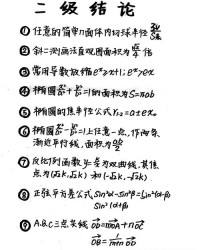 二级结论
① 任意的简单n面体内切球半径 3V/S表
② 斜二测画法直观图面积为 √2/4 倍
③ 常用导数放缩 eˣ≥x+1; eˣ>ex
④ 椭圆 x²/a²+y²/b²=1的面积为S=πab
⑤ 椭圆的焦半径公式 r₁,₂=a±ex₀
⑥ 椭圆 x²/a²-y²/b²=1上任意一点,作两条
渐近平行线,面积为 ab/2
⑦ 反比例函数y=k/x为双曲线,其焦
点为(√2k,√2k)和(-√2k,-√2k)
⑧ 正弦平方差公式sin²α-sin²β=sin(α+β)
sin(α-β)
⑨ A.B.C三点共线 OD=mOA+nOC
OB=1/(m+n) OD